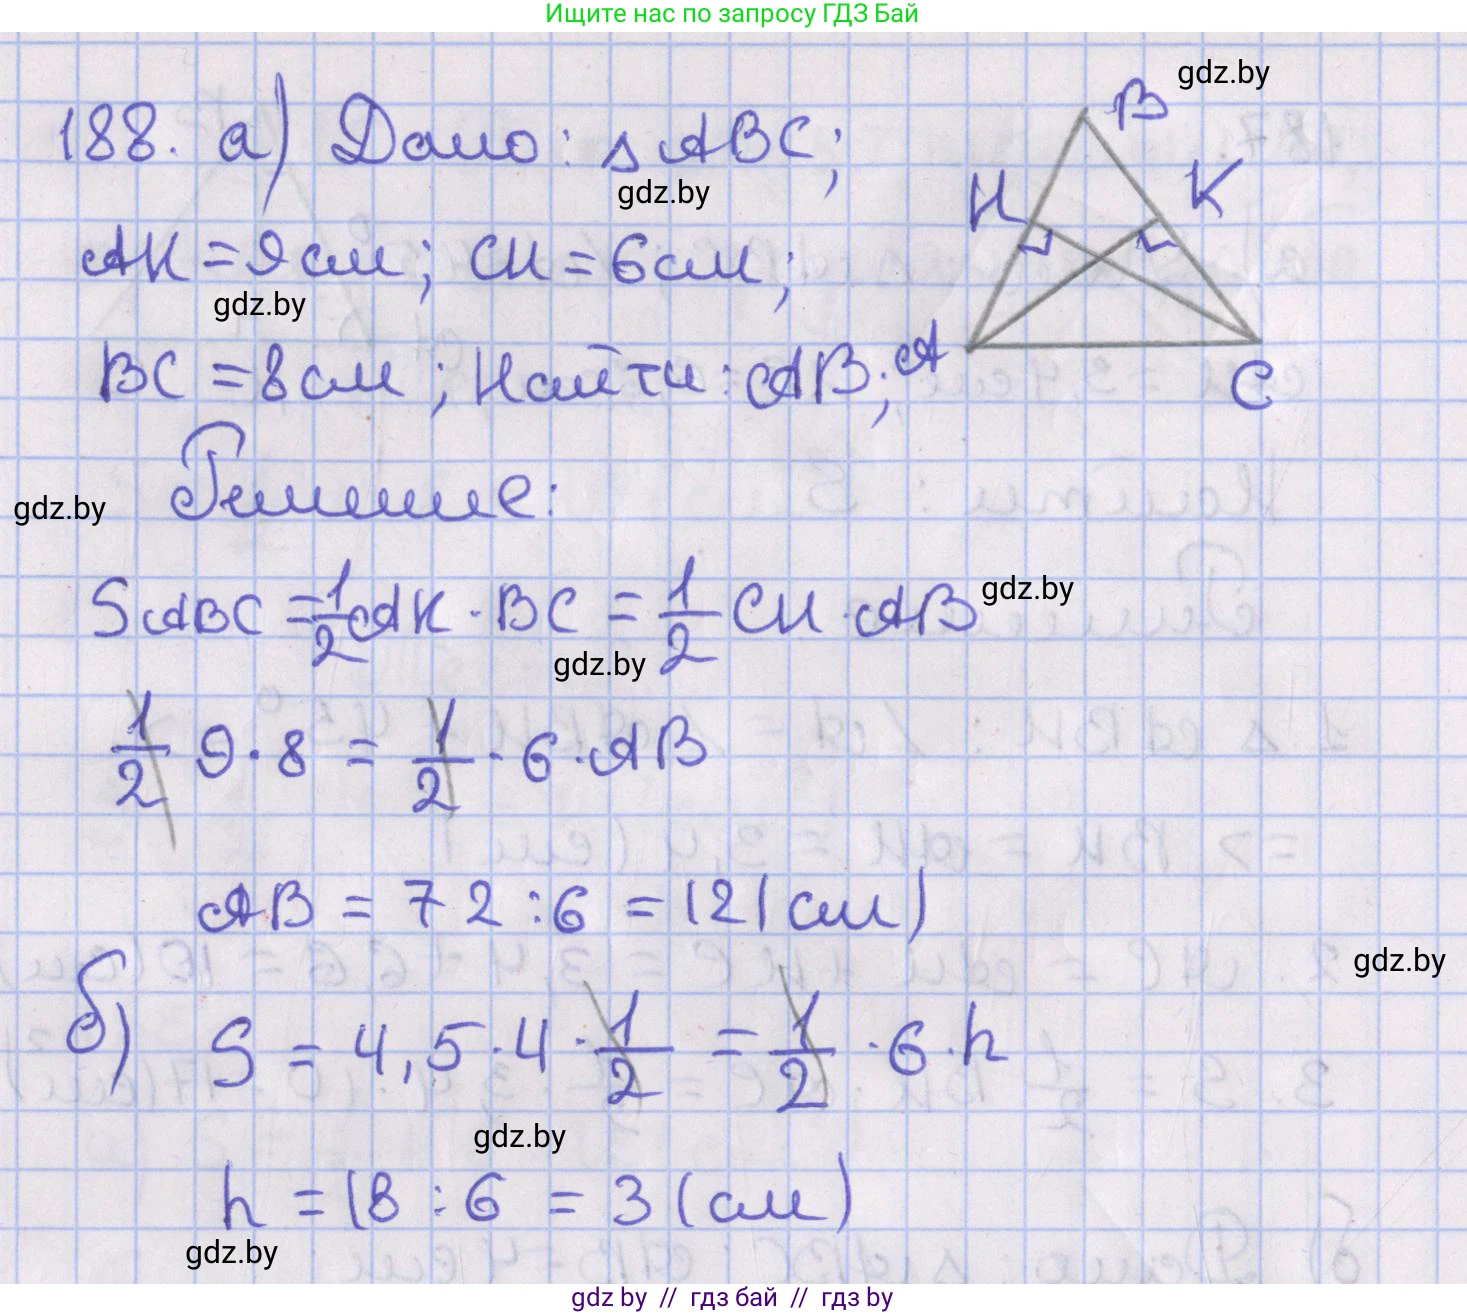 Ищите нас по запросу ГДЗ Бай
gdz.by
188. а) Дано: △ ABC;
gdz.by
AK = 9 см; CH = 6 см;
gdz.by
BC = 8 см; Найти: AB;
B
H
K
A
C
Решение:
gdz.by
S ABC = 1/2 AK · BC = 1/2 CH · AB
gdz.by
gdz.by
1/2 9 · 8 = 1/2 · 6 · AB
AB = 72 : 6 = 12 (см)
gdz.by
б) S = 4,5 · 4 · 1/2 = 1/2 · 6 · h
gdz.by
h = 18 : 6 = 3 (см)
gdz.by
gdz by // гдз бай // гдз by